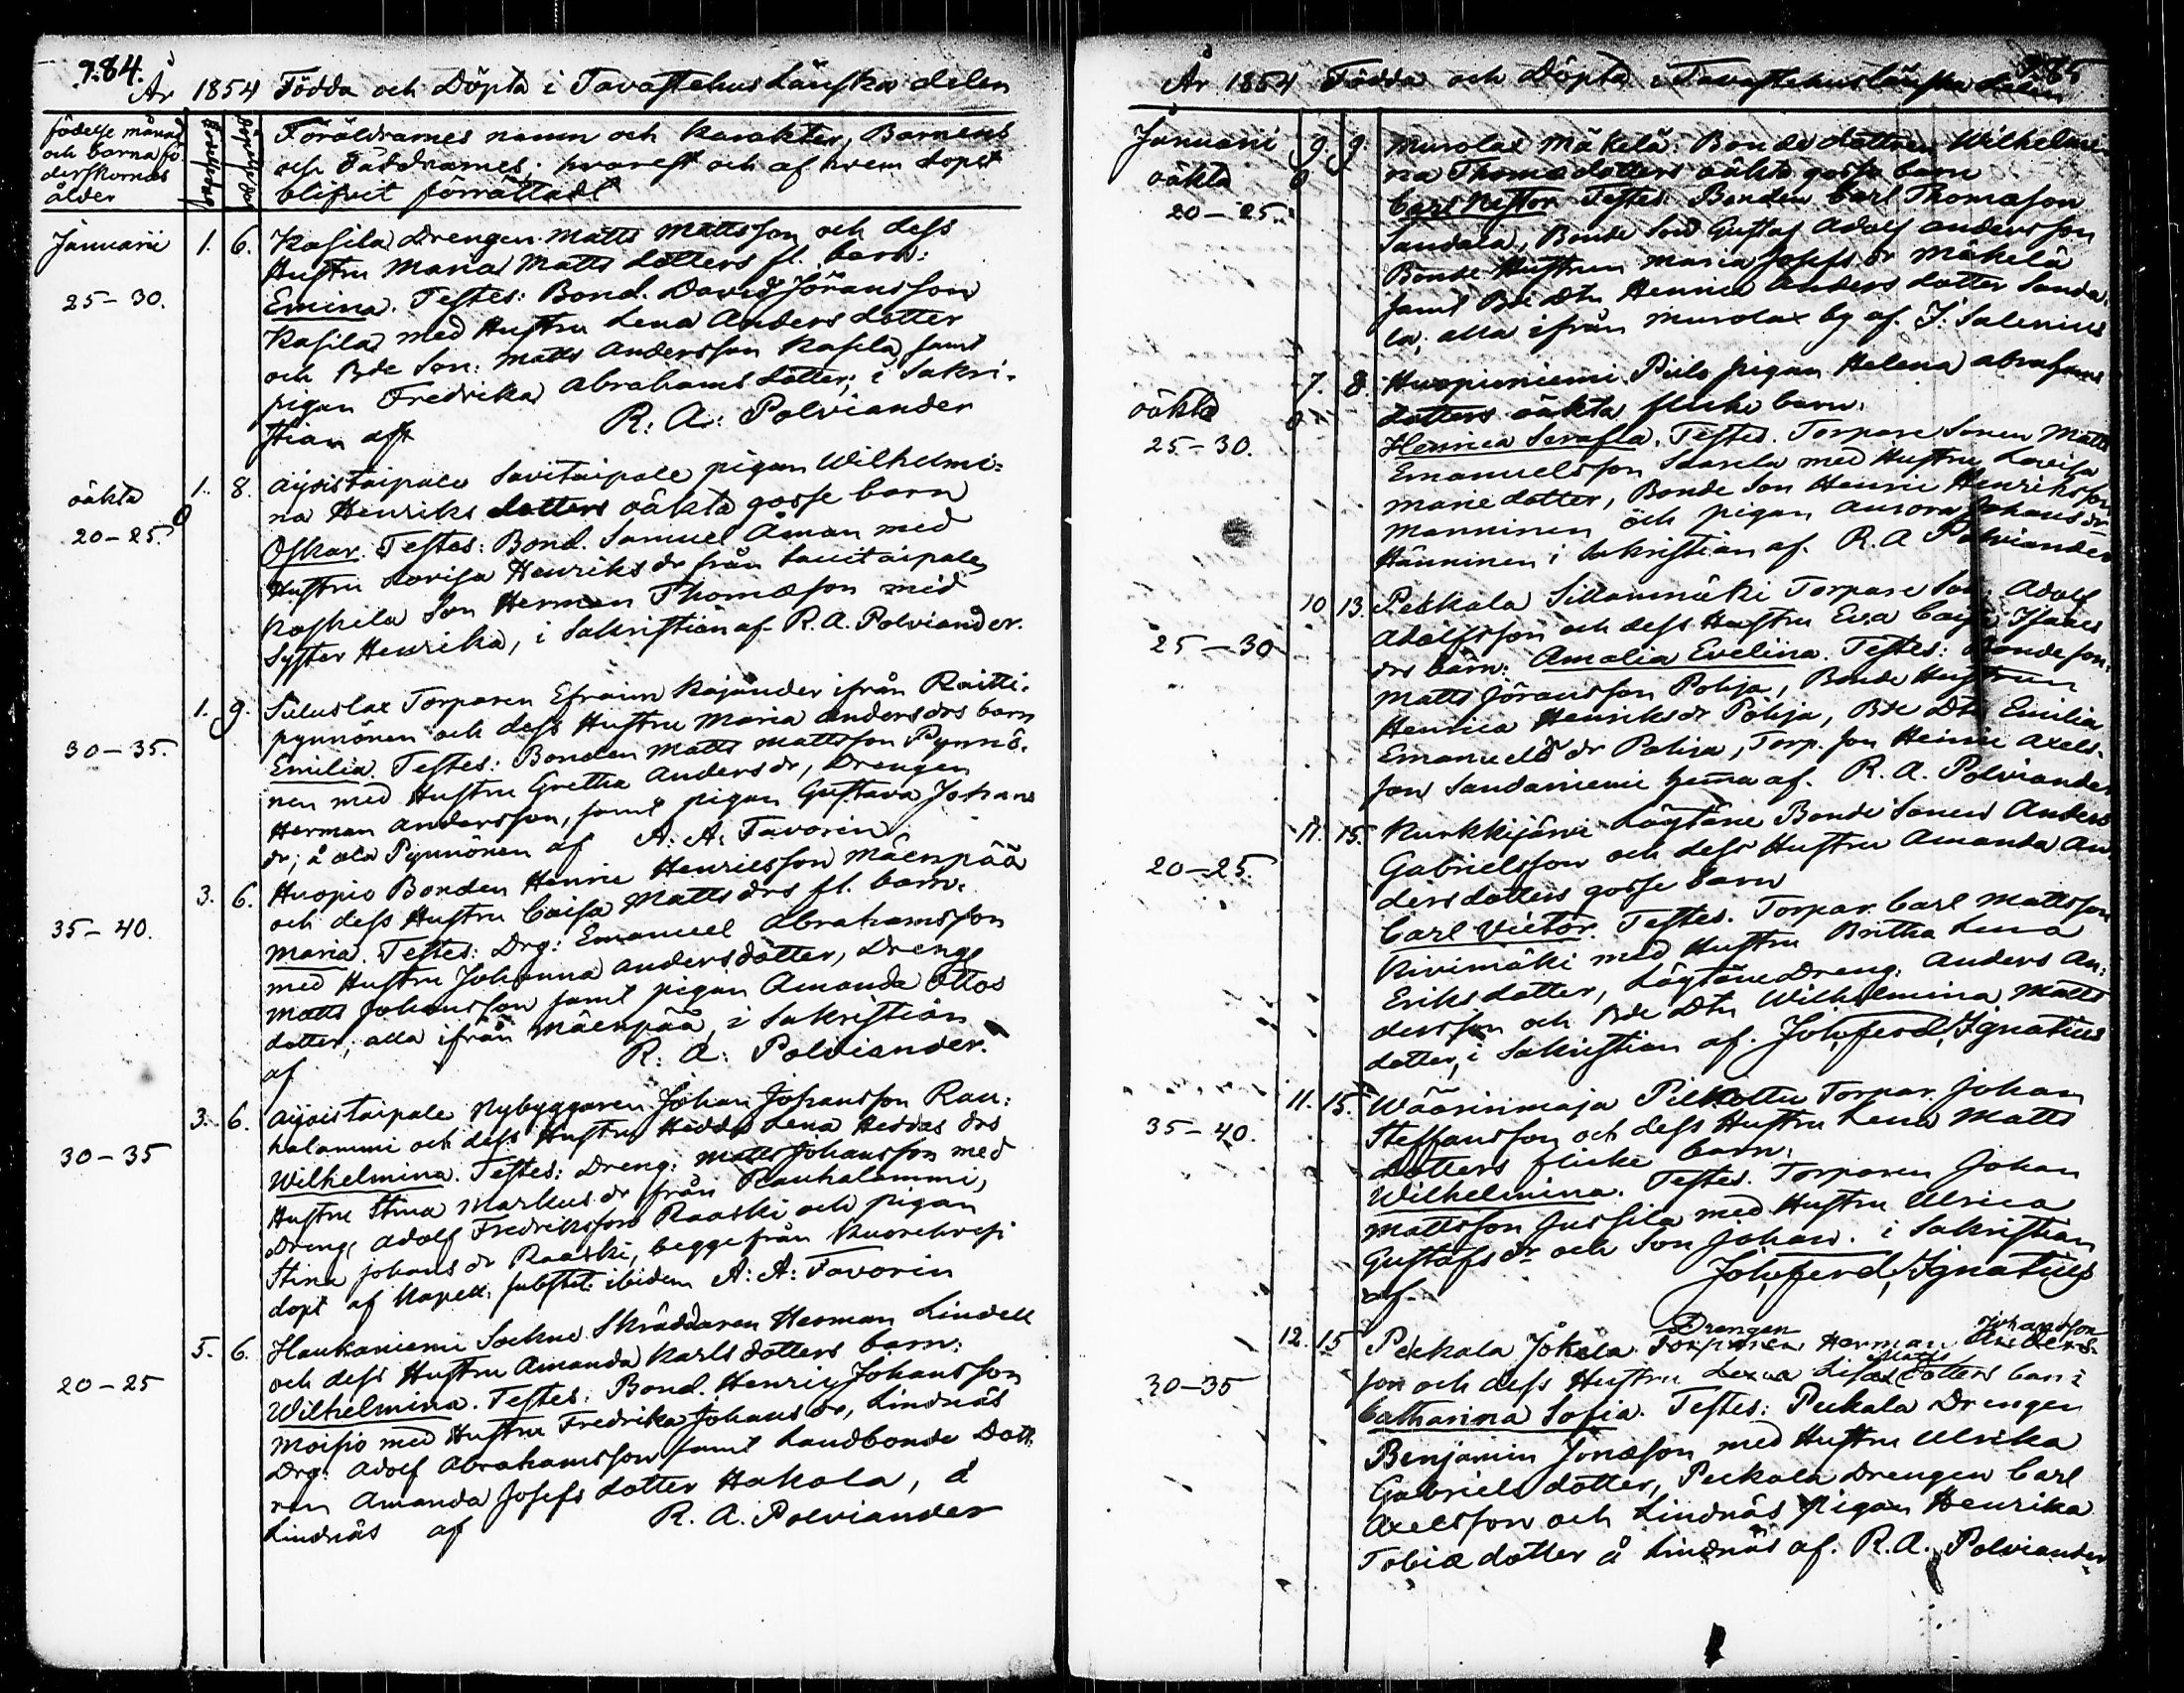 984.
År 1854 Födda och Döpta i Tavastehus Länska delen
födelse månad
och barnafö
derskornas
ålder
Föräldrarnes namn och karakter, Barnens
och Faddrarnes; hvarest och af hvem dopet
blifvit förrättadt
Januarii 1. 6. Kasila Drengen Matts Mattsson och dess
Hustru Maria Matts dotters fl. barn:
25-30. Emina. Testes: Bond. David Jöransson
Kasila med Hustru Lena Anders dotter
och Bde Son: Matts Andersson Kasila, samt
pigan Fredrika Abrahams dotter; i Sakri-
stian af R: A: Polviander
oäkta 1. 8. Ayoistaipale Savitaipale pigan Wilhelmi-
na Henriks dotters oäkta gosse barn
20-25. Oskar. Testes: Bond. Samuel Åman med
Hustru Lovisa Henriks dr från Savitaipale
Koskela Son Herman Thomæson med
Syster Henrika, i Sakristian af R. A. Polviander.
1. 9. Siluslax Torparen Efraim Kajander ifrån Raitti-
pynnönen och dess Hustru Maria Anders drs barn
30-35. Emilia. Testes: Bonden Matts Mattsson Pynnö-
nen med Hustru Gretha Anders dr, Drengen
Herman Andersson, samt pigan Gustava Johans
dr; å Pynnönen af A: A: Favorin
3. 6. Huopio Bonden Henric Henricsson Mäenpää
och dess Hustru Caisa Matts drs fl. barn.
35-40. Maria. Testes: Drg: Emanuel Abrahamsson
med Hustru Johanna Andersdotter, Dreng
Matts Johansson samt pigan Amanda Ottos
dotter; alla ifrån Mäenpää, i Sakristian
af R: A: Polviander.
3. 6. Ayoistaipale Nybyggaren Johan Johansson Rau-
halammi och dess Hustru Hedda Lena Heddas drs
30-35 Wilhelmina. Testes: Dreng: Matts Johansson med
Hustru Stina Markus dr från Rauhalammi,
Dreng Adolf Fredriksson Raaski och pigan
Stina Johans dr Raaski, begge från Kuorehvesi
döpt af Kapell: substit: ibidem A: A: Favorin
5. 6. Haukaniemi Sockne Skräddaren Herman Lindell
och dess Hustru Amanda Karls dotters barn:
20-25 Wilhelmina. Testes: Bond. Henric Johansson
Moisio med Hustru Fredrika Johans dr, Lindnäs
Drg: Adolf Abrahamsson samt Landbonde Dott-
ren Amanda Josefs dotter Hakola, å
Lindnäs af R. A. Polviander
985
År 1854 Födda och Döpta i Tavastehus länska delen
Januarii 9 9. Murolax Mäkelä: Bonde dottren Wilhelmi-
oäkta na Thomæ dotters oäkta gosse barn
20-25. Carl Nestor. Testes: Bonden Carl Thomæson
Sandala, Bonde Son Gustaf Adolf Andersson
Bonde Hustrun Maria Josefs dr Mäkelä
samt Bde Dtn Henrica Anders dotter Sanda-
la; alla ifrån Murolax by af. J: Salenius
7. 8. Huopioniemi Piilo pigan Helena Abrahams
oäkta dotters oäkta flicke barn:
25-30. Henrica Serafia. Testes. Torpare Sonen Matts
Emanuelsson Saarela med Hustru Lovisa
Marie dotter, Bonde Son Henric Henriksson
Manninen och pigan Aurora Johans dr
Hänninen i Sakristian af. R. A Polviander
10 13. Pekkala Sillanmäki Torpare Son Adolf
Adolfsson och dess Hustru Eva Caisa Isaacs
25-30 drs barn: Amalia Evelina. Testes: Bonde son.
Matts Jöransson Pohja, Bonde Hustrun
Henrica Henriks dr Pohja, Bde Dtn Emilia
Emanuels dr Pohja, Torp. son Heinric Axels-
son Sandaniemi hemma af. R. A. Polviander
11. 15. Kurkkijärvi Lögtäne Bonde Sonen Anders
20-25. Gabrielsson och dess Hustru Amanda An
dersdotters gosse barn
Carl Victor. Testes. Torpar. Carl Mattsson
Kivimäki med Hustru Britha Lena
Eriks dotter, Lögtäne Dreng: Anders An-
dersson och Bde Dtn Wilhelmina Matts
dotter; i Sakristian af. Joh: ferd. Ignatius
11. 15. Wäärinmaja Pilkottu Torpar. Johan
35-40. Steffansson och dess Hustru Lena Matts
dotters flicke barn:
Wilhelmina. Testes. Torparen Johan
Mattsson Jussila med Hustru Ulrica
Gustafs dr och Son Johan. i Sakristian
af Joh: ferd. Ignatius
12. 15 Pekkala Jokela Torparen Drengen Herman Anders- Johansson
30-35 son och dess Hustru Lena Lisa Matts dotters barn:
Catharina Sofia. Testes: Pekkala Drengen
Benjamin Jonæson med Hustru Ulrika
Gabriels dotter, Pekkala Drengen Carl
Axelsson och Lindnäs Pigan Henrika
Tobiæ dotter å Lindnäs af. R. A. Polviander